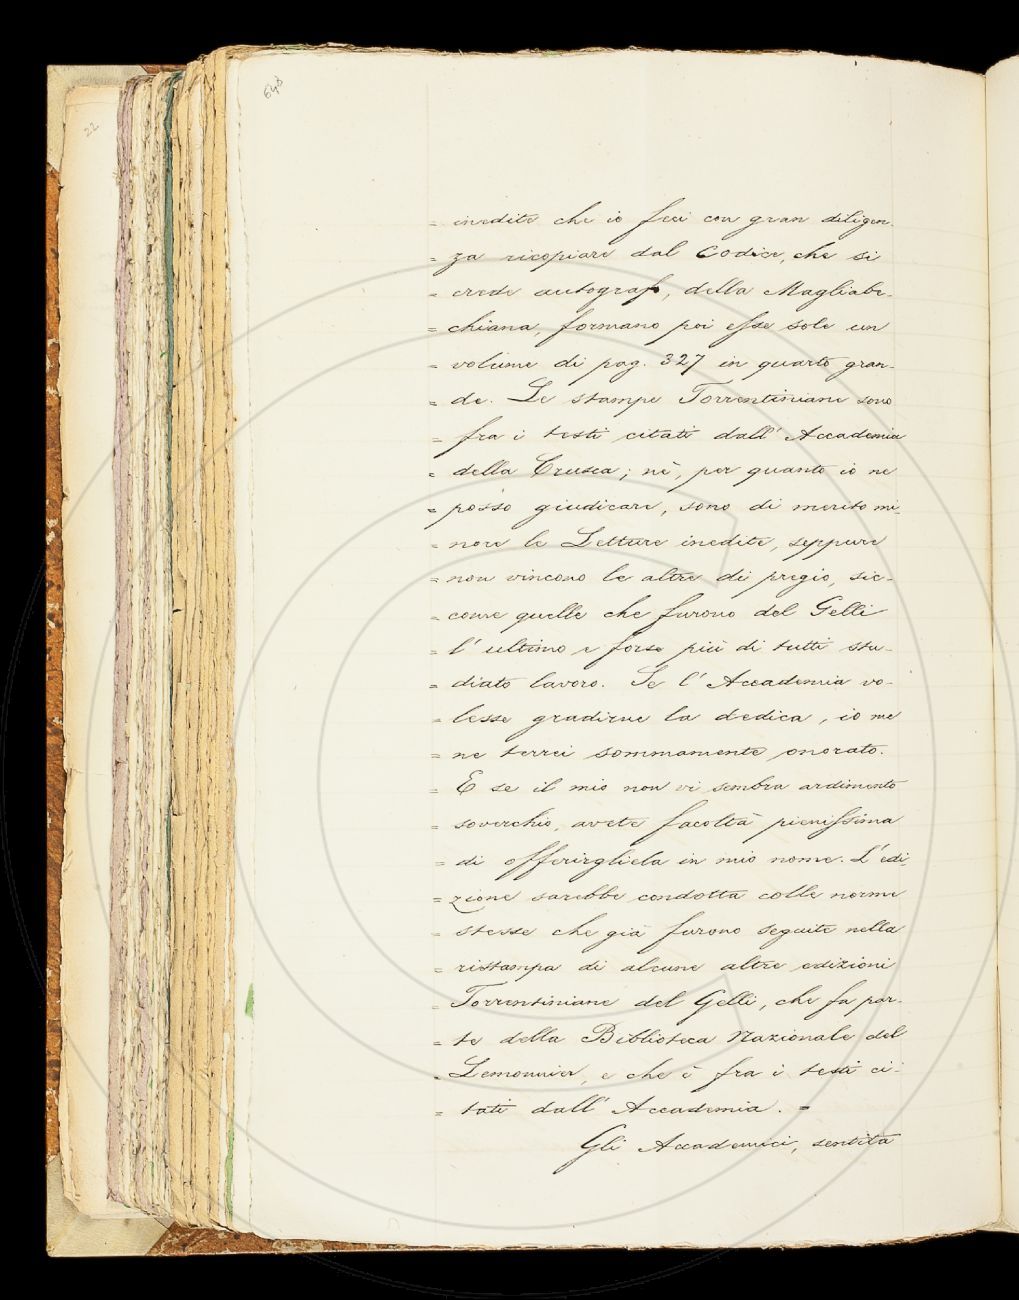 648
22
= inedite che io feci con gran diligen-
= za ricopiare dal Codice, che si
= crede autografo, della Magliabe-
= chiana, formano poi esse sole un
= volume di pag. 327 in quarto gran-
= de. Le stampe Torrentiniane sono
= fra i testi citati dall' Accademia
= della Crusca; nè, per quanto io ne
= posso giudicare, sono di merito mi-
= nore le Letture inedite, seppure
= non vincono le altre di pregio, sic-
= come quelle che furono del Gelli
= l' ultimo e forse più di tutti stu-
= diato lavoro. Se l' Accademia vo-
= lesse gradirne la dedica, io me
= ne terrei sommamente onorato.
= E se il mio non vi sembra ardimento
= soverchio, avete facoltà pienissima
= di offerirgliela in mio nome. L' edi-
= zione sarebbe condotta colle norme
= stesse che già furono seguite nella
= ristampa di alcune altre edizioni
= Torrentiniane del Gelli, che fa par-
= te della Biblioteca Nazionale del
= Lemonnier, e che è fra i testi ci-
= tati dall' Accademia. =
Gli Accademici, sentita